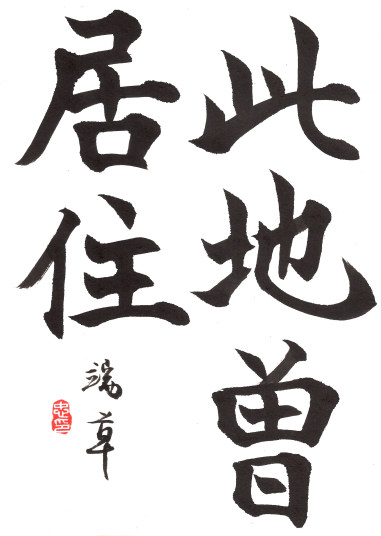 此地曽
居住
端草